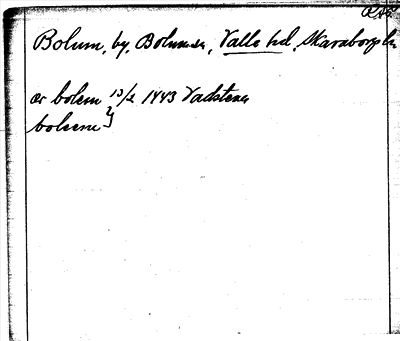 RAP
Bolum, by, Bolums sn, Valle hd, Skaraborgs län
av bolem 13/2 1443 Vadstena
boleene }